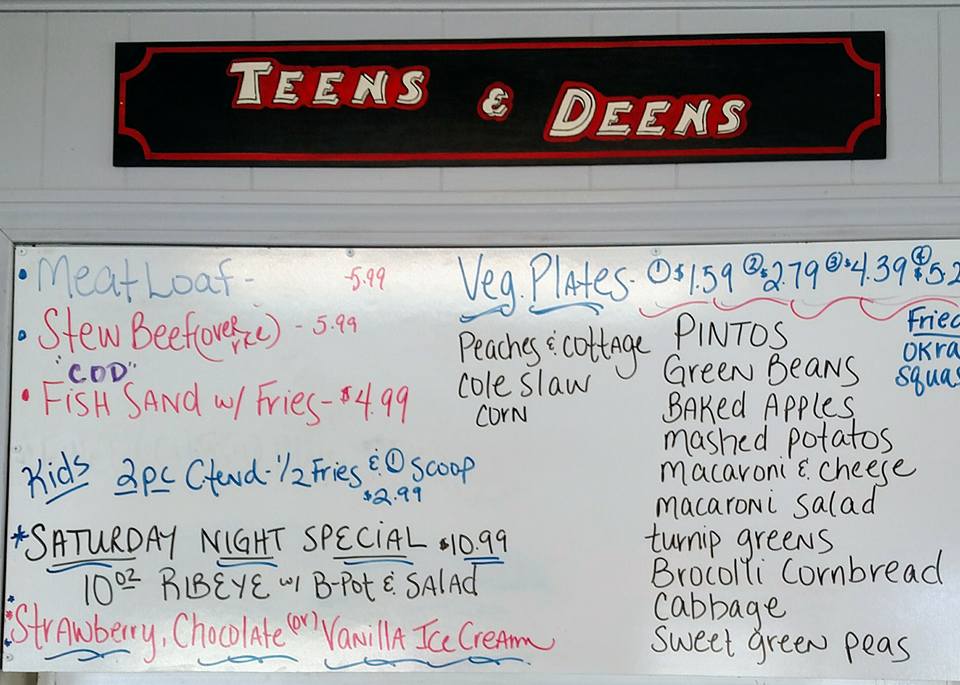 TEENS & DEENS
• Meat Loaf - 5.99
• Stew Beef (over rice) - 5.99
"COD"
• FISH SAND w/ Fries - $4.99
Kids 2pc Ctend - 1/2 Fries & ① Scoop
$2.99
* SATURDAY NIGHT SPECIAL $10.99
10oz RIBEYE w/ B-Pot & SALAD
* Strawberry, Chocolate (or) Vanilla Ice Cream
Veg. Plates - ① $1.59 ② $2.79 ③ $4.39 ④ $5.2
Peaches & Cottage
Cole Slaw
Corn
PINTOS
Green Beans
BAKED Apples
mashed potatos
macaroni & cheese
macaroni salad
turnip greens
Brocolli Cornbread
cabbage
sweet green peas
Fried
OKRA
Squas